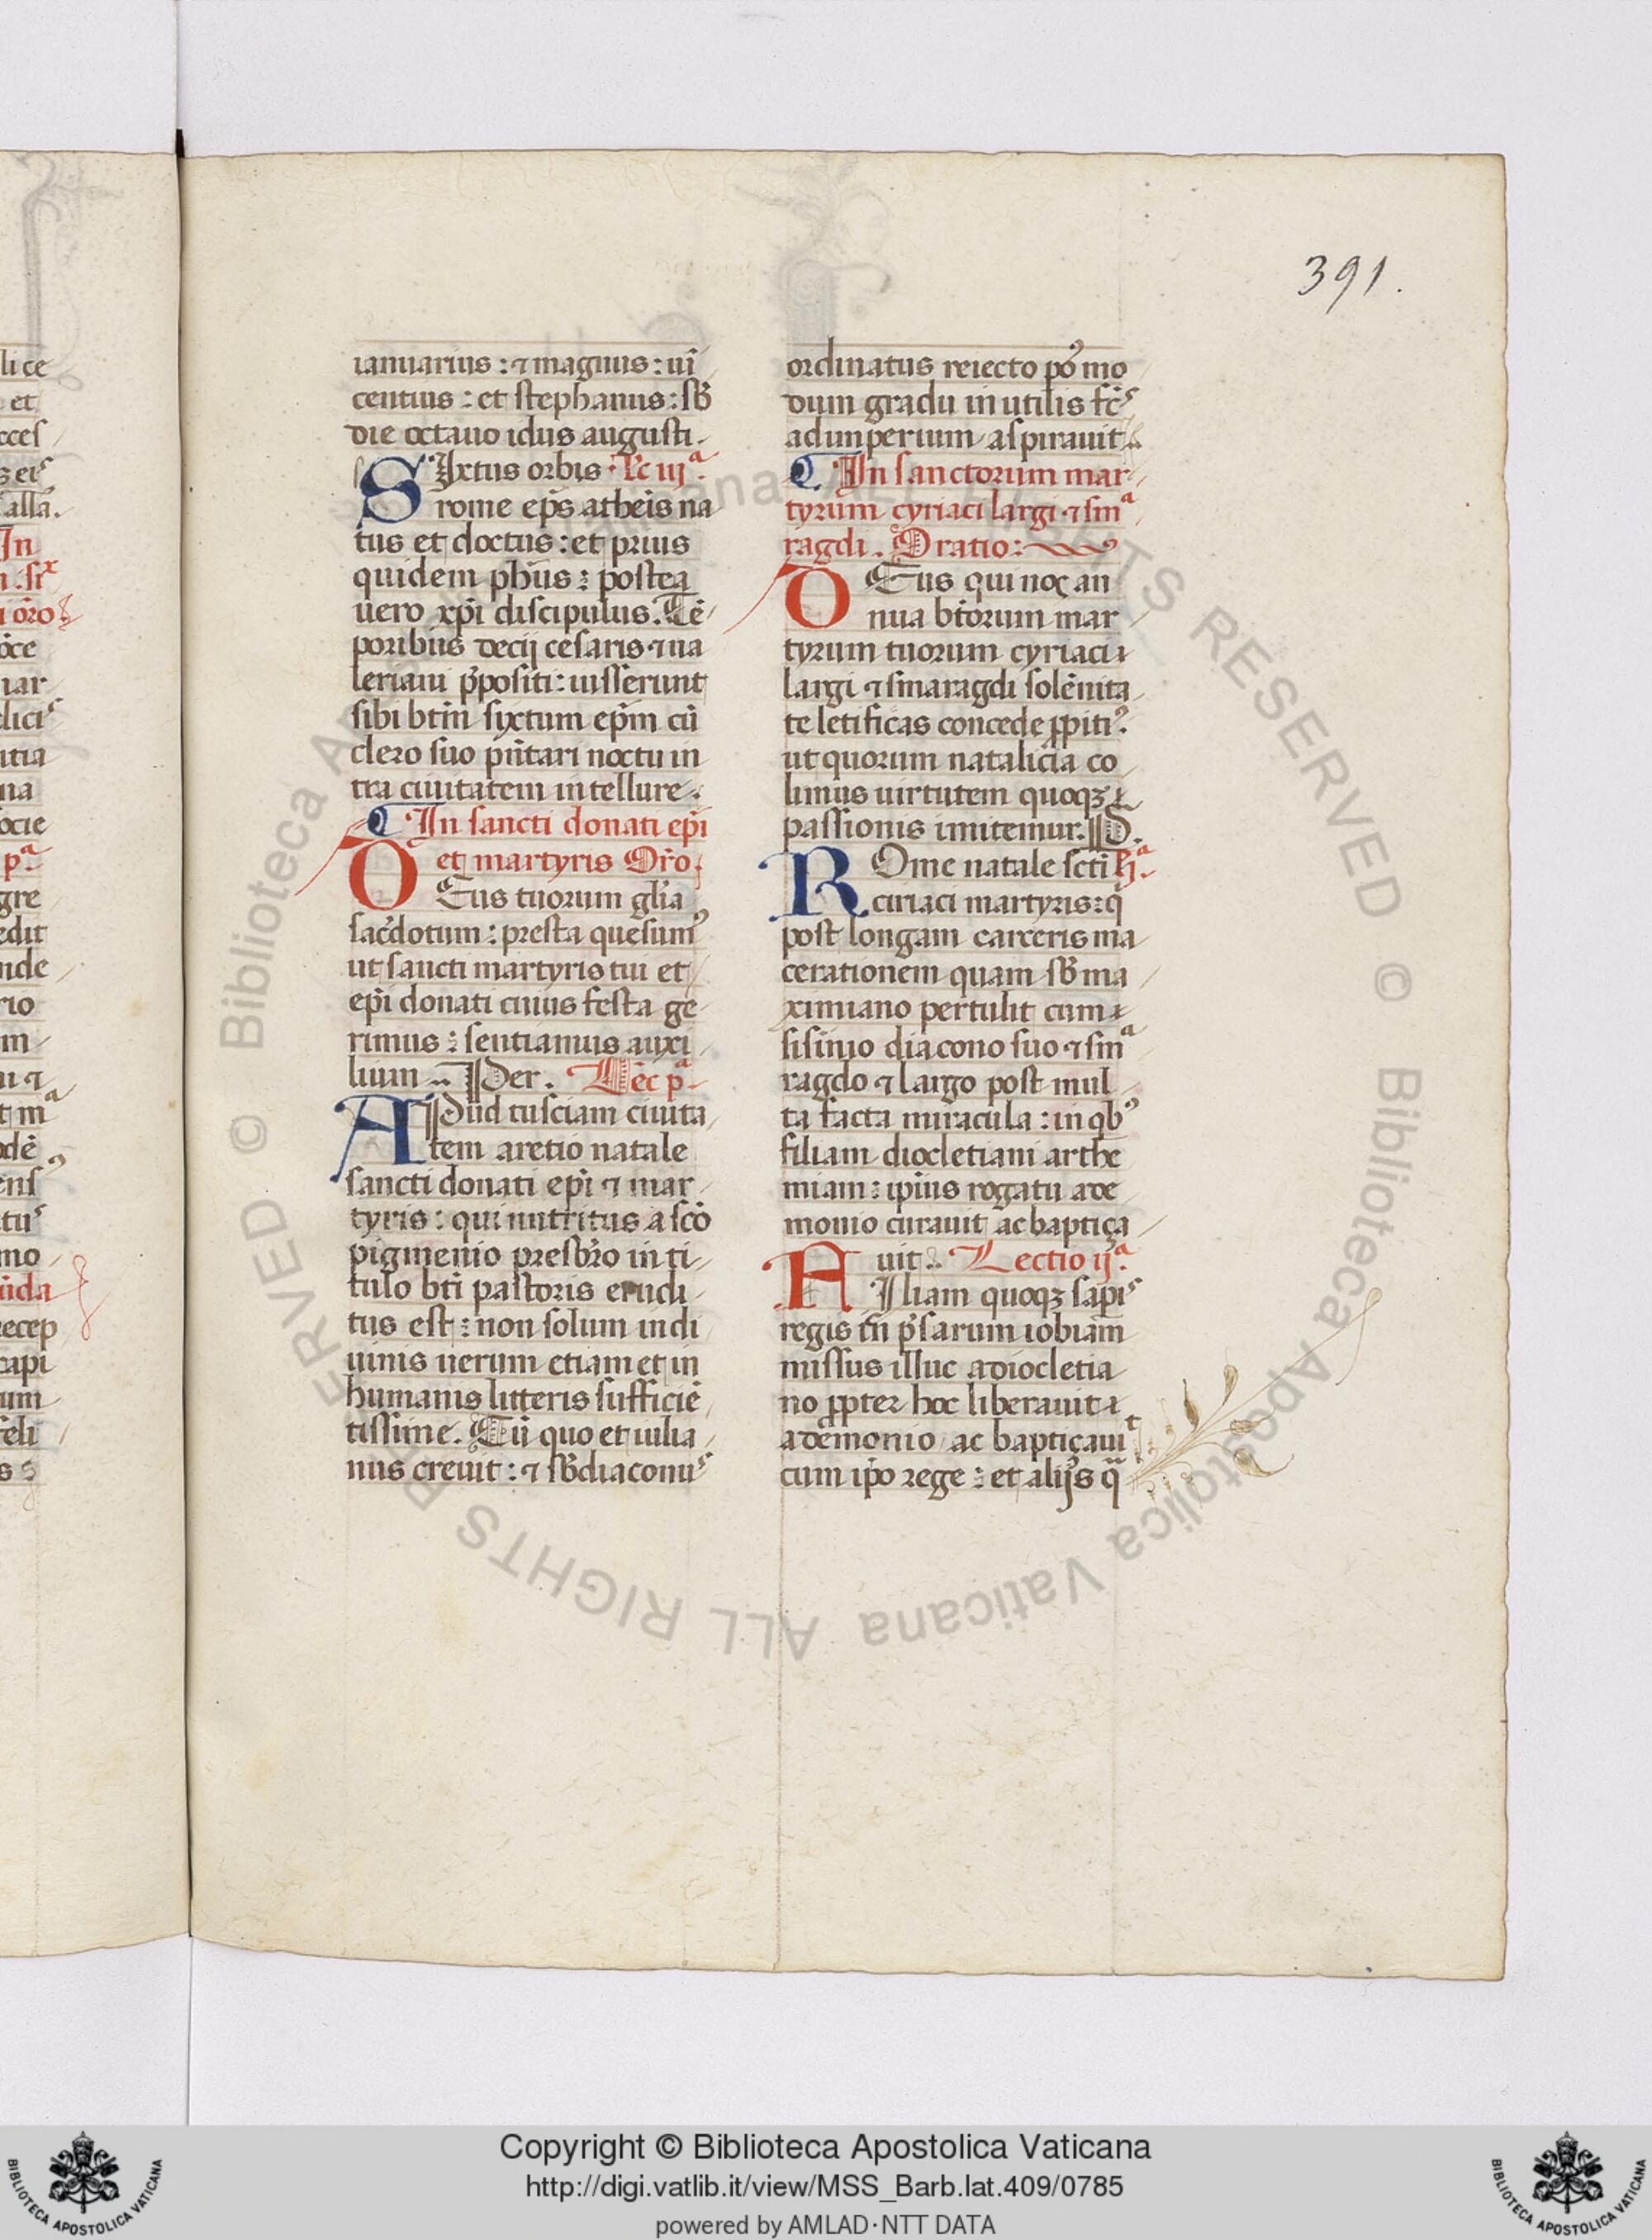 391.
ianuarius : ⁊ magnus : uī
centius : et stephanus : sƀ
die octauo idus augusti.
SIxtus orbis Lc iijª
rome ep̄s atheīs na
tus et doctus : et prius
quidem ph̄us : postea
uero xp̄i discipulus. Tē
poribus decij cesaris ⁊ ua
leriani p̄positi : iusserunt
sibi btm̄ syxtum ep̄m cū
clero suo pn̄tari noctu in
tra ciuitatem in tellure.
In sancti donati ep̄i
et martyris Orō.
DEus tuorum gl̄ia
sac̄dotum : presta quesumꝰ
ut sancti martyris tui et
ep̄i donati cuius festa ge
rimus : sentiamus auxi
lium. Per. Lēc pª
APud tusciam ciuita
tem aretio natale
sancti donati ep̄i ⁊ mar
tyris : qui nutritus a scō
pigmenio presb̄ro in ti
tulo bt̄i pastoris erudi
tus est : non solum in di
uinis uerum etiam et in
humanis litteris sufficiē
tissime. Cū quo et iulia
nus creuit : ⁊ sƀdiaconus
ordinatus reiecto poꝰ mo
dum gradu inutilis fc̄s
ad imperium aspirauit
In sanctorum mar
tyrum cyriaci largi ⁊ smª
ragdi. Oratio :
DEus qui noꝫ an
nua bt̄orum mar
tyrum tuorum cyriaci
largi ⁊ smaragdi solēnita
te letificas concede ꝓpitiꝰ
ut quorum natalicia co
limus uirtutem quoqꝫ
passionis imitemur. P.
ROme natale scti
ciriaci martyris : q̄
post longam carceris ma
cerationem quam sƀ ma
ximiano pertulit cum
sisinio diacono suo ⁊ smª
ragdo ⁊ largo post mul
ta facta miracula : in qbꝰ
filiam diocletiani arthe
miam : ip̄ius rogatu a de
monio curauit ac baptiça
uit. Lectio ijª.
FIliam quoqꝫ sapīs
regis tn̄ p̄sarum iobiam
missus illuc a diocletia
no ꝓpter hoc liberauit
a demonio ac baptiçauit
cum ip̄o rege : et alijs q̄
lice
et
Copyright © Biblioteca Apostolica Vaticana
http://digi.vatlib.it/view/MSS_Barb.lat.409/0785
powered by AMLAD·NTT DATA
BIBLIOTECA APOSTOLICA VATICANA
BIBLIOTECA APOSTOLICA VATICANA
© Biblioteca Apostolica Vaticana ALL RIGHTS RESERVED © Biblioteca Apostolica Vaticana ALL RIGHTS RESERVED